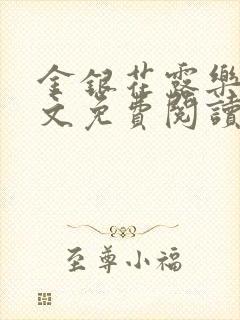 金銀花露樂
文免費閱讀
至尊小福